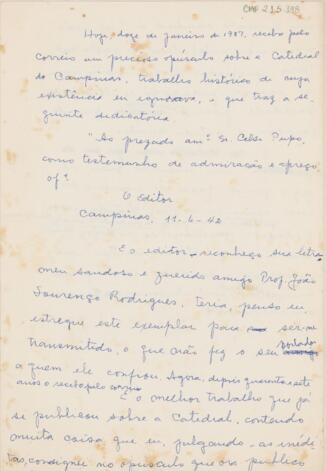 CMP 2.1.5.398
Hoje, doze de janeiro de 1987, recebo pelo
correio um precioso opúsculo sobre a Catedral
de Campinas, trabalho histórico de cuja
existência eu ignorava, e que traz a se-
guinte dedicatória:
"Ao prezado amº Sr. Celso Pupo,
como testemunho de admiração e apreço
ofº
O Editor
Campinas, 11-6-42
E o editor - reconheço sua letra
meu saudoso e querido amigo Prof. João
Lourenço Rodrigues, teria, penso eu,
entregue este exemplar para ser-me
transmitido, o que não fez o seu portador
a quem ele confiou. Agora, depois quarenta e sete
anos o recebo pelo correio
E o melhor trabalho que já
se publicou sobre a Catedral, contendo
muita coisa que eu, julgando-as inédi-
tas, consignei no opúsculo que ora publico